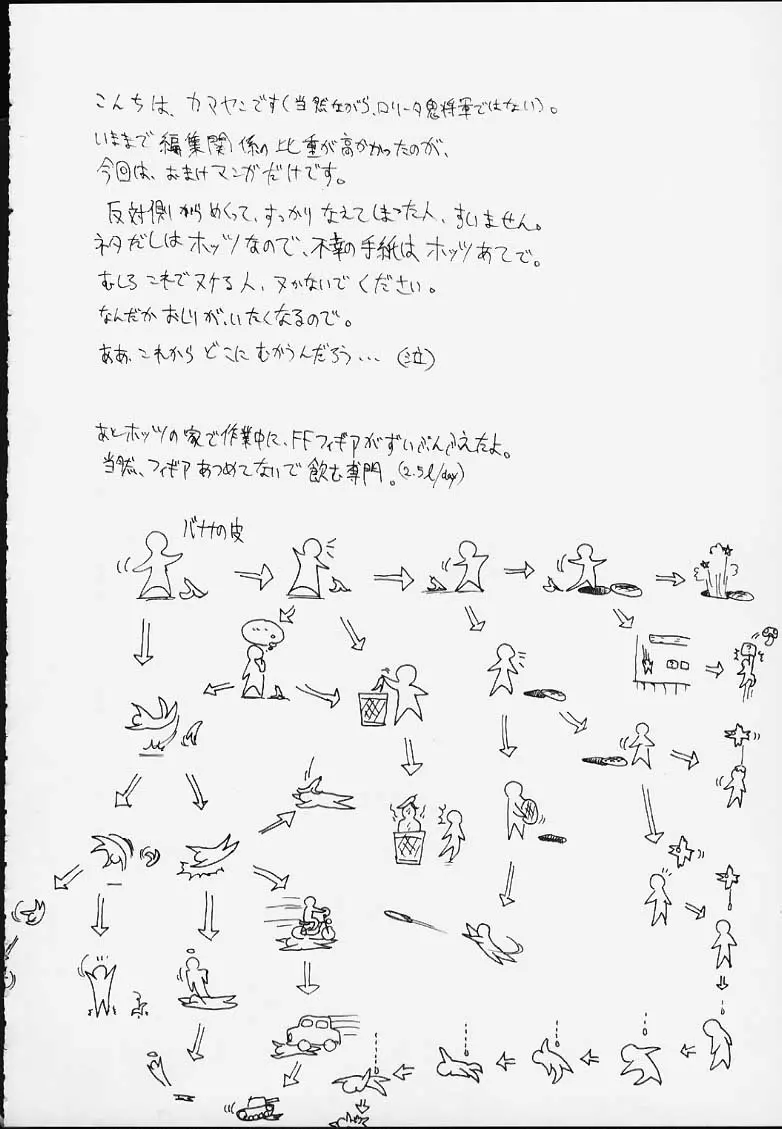 こんちは、カマヤンです(当然ながら、ロリータ鬼将軍ではない)。
いままで編集関係の比重が高かったのが、
今回は、おまけマンガだけです。
反対側からめくって、すっかりなえてしまった人、すいません。
ネタだしはホッツなので、不幸の手紙はホッツあてで。
むしろこれでヌケる人、ヌかないでください。
なんだかおしりが、いたくなるので。
ああ、これからどこにむかうんだろう…(泣)
あとホッツの家で作業中に、FFフィギアがずいぶんふえたよ。
当然、フィギアあつめてないで飲む専門。(2.5l/day)
バナナの皮
…
?
?
?